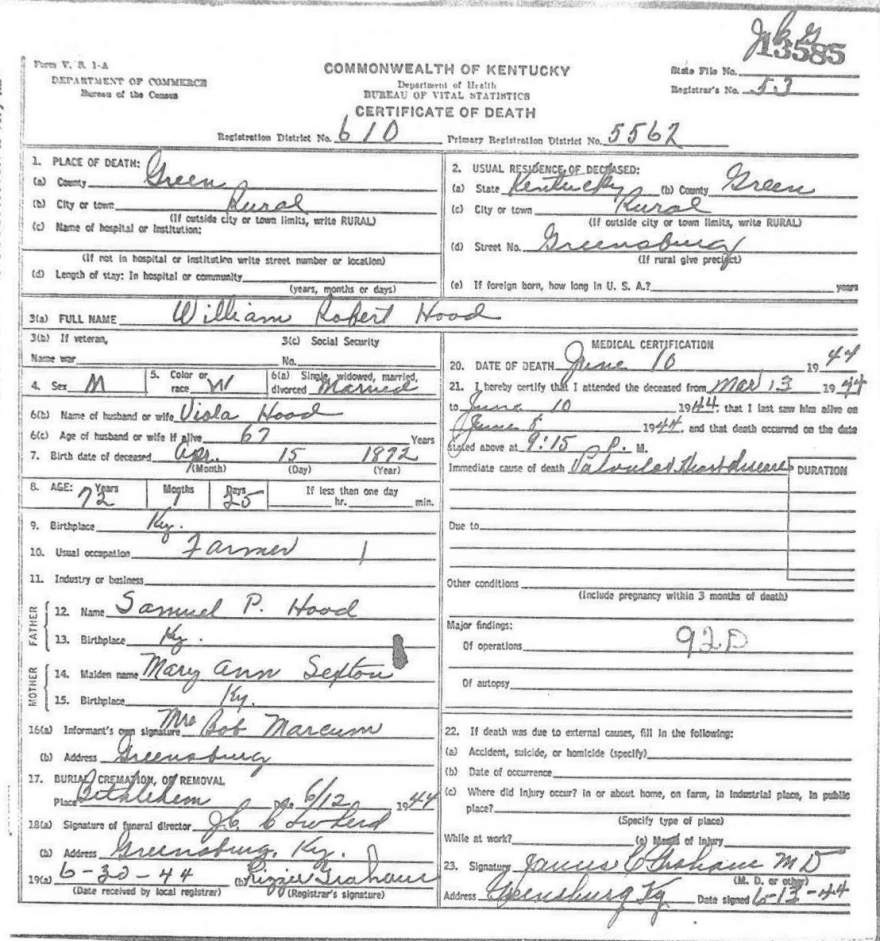 J C G
13585
Form V. S. 1-A
DEPARTMENT OF COMMERCE
Bureau of the Census
COMMONWEALTH OF KENTUCKY
Department of Health
BUREAU OF VITAL STATISTICS
CERTIFICATE OF DEATH
State File No.
Registrar's No. 53
Registration District No. 610 Primary Registration District No. 5562
1. PLACE OF DEATH:
(a) County Green
(b) City or town Rural
(If outside city or town limits, write RURAL)
(c) Name of hospital or institution:
(If not in hospital or institution write street number or location)
(d) Length of stay: In hospital or community
(years, months or days)
2. USUAL RESIDENCE OF DECEASED:
(a) State Kentucky (b) County Green
(c) City or town Rural
(If outside city or town limits, write RURAL)
(d) Street No. Greensburg
(If rural give precinct)
(e) If foreign born, how long in U. S. A.? years
3(a) FULL NAME William Robert Hood
3(b) If veteran,
Name war
3(c) Social Security
No.
4. Sex M
5. Color or race W
6(a) Single, widowed, married, divorced Married
6(b) Name of husband or wife Viola Hood
6(c) Age of husband or wife if alive 67 Years
7. Birth date of deceased Apr. 15 1872
(Month) (Day) (Year)
8. AGE: Years 72 Months 1 Days 25 If less than one day
hr. min.
9. Birthplace Ky.
10. Usual occupation Farmer
11. Industry or business
FATHER
12. Name Samuel P. Hood
13. Birthplace Ky.
MOTHER
14. Maiden name Mary Ann Sexton
15. Birthplace Ky.
16(a) Informant's own signature Mrs Bob Marcum
(b) Address Greensburg
17. BURIAL, CREMATION, OR REMOVAL
Place Bethlehem Date 6/12 1944
18(a) Signature of funeral director
(b) Address Greensburg, Ky.
19(a) 6-30-44 (b) Lizzie Graham
(Date received by local registrar) (Registrar's signature)
MEDICAL CERTIFICATION
20. DATE OF DEATH June 10 1944
21. I hereby certify that I attended the deceased from Mar 13 1944
to June 10 1944; that I last saw him alive on
June 8 1944 and that death occurred on the date
stated above at 9:15 P. M.
Immediate cause of death Heart disease DURATION
Due to
Other conditions
(Include pregnancy within 3 months of death)
Major findings:
Of operations 92D
Of autopsy
22. If death was due to external causes, fill in the following:
(a) Accident, suicide, or homicide (specify)
(b) Date of occurrence
(c) Where did injury occur? In or about home, on farm, in industrial place, in public
place?
(Specify type of place)
While at work? (e) Means of injury
23. Signature James C Graham M D
(M. D. or other)
Address Greensburg Ky Date signed 6-13-44